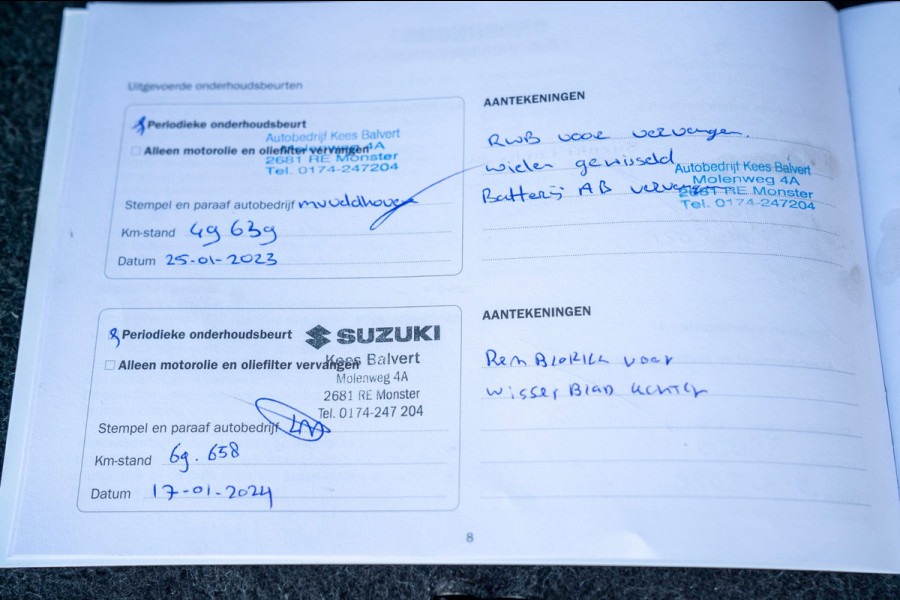 Uitgevoerde onderhoudsbeurten
Periodieke onderhoudsbeurt
Alleen motorolie en oliefilter vervangen
Autobedrijf Kees Balvert
Molenweg 4A
2681 RE Monster
Tel. 0174-247204
Stempel en paraaf autobedrijf
Km-stand 49 639
Datum 25-01-2023
AANTEKENINGEN
RWB voor vervangen.
wielen gewisseld
Batterij AB
Autobedrijf Kees Balvert
Molenweg 4A
2681 RE Monster
Tel. 0174-247204
Periodieke onderhoudsbeurt
Alleen motorolie en oliefilter vervangen
SUZUKI
Kees Balvert
Molenweg 4A
2681 RE Monster
Tel. 0174-247 204
Stempel en paraaf autobedrijf
Km-stand 69.658
Datum 17-01-2024
AANTEKENINGEN
Rem voor
wisser Blad achter
8